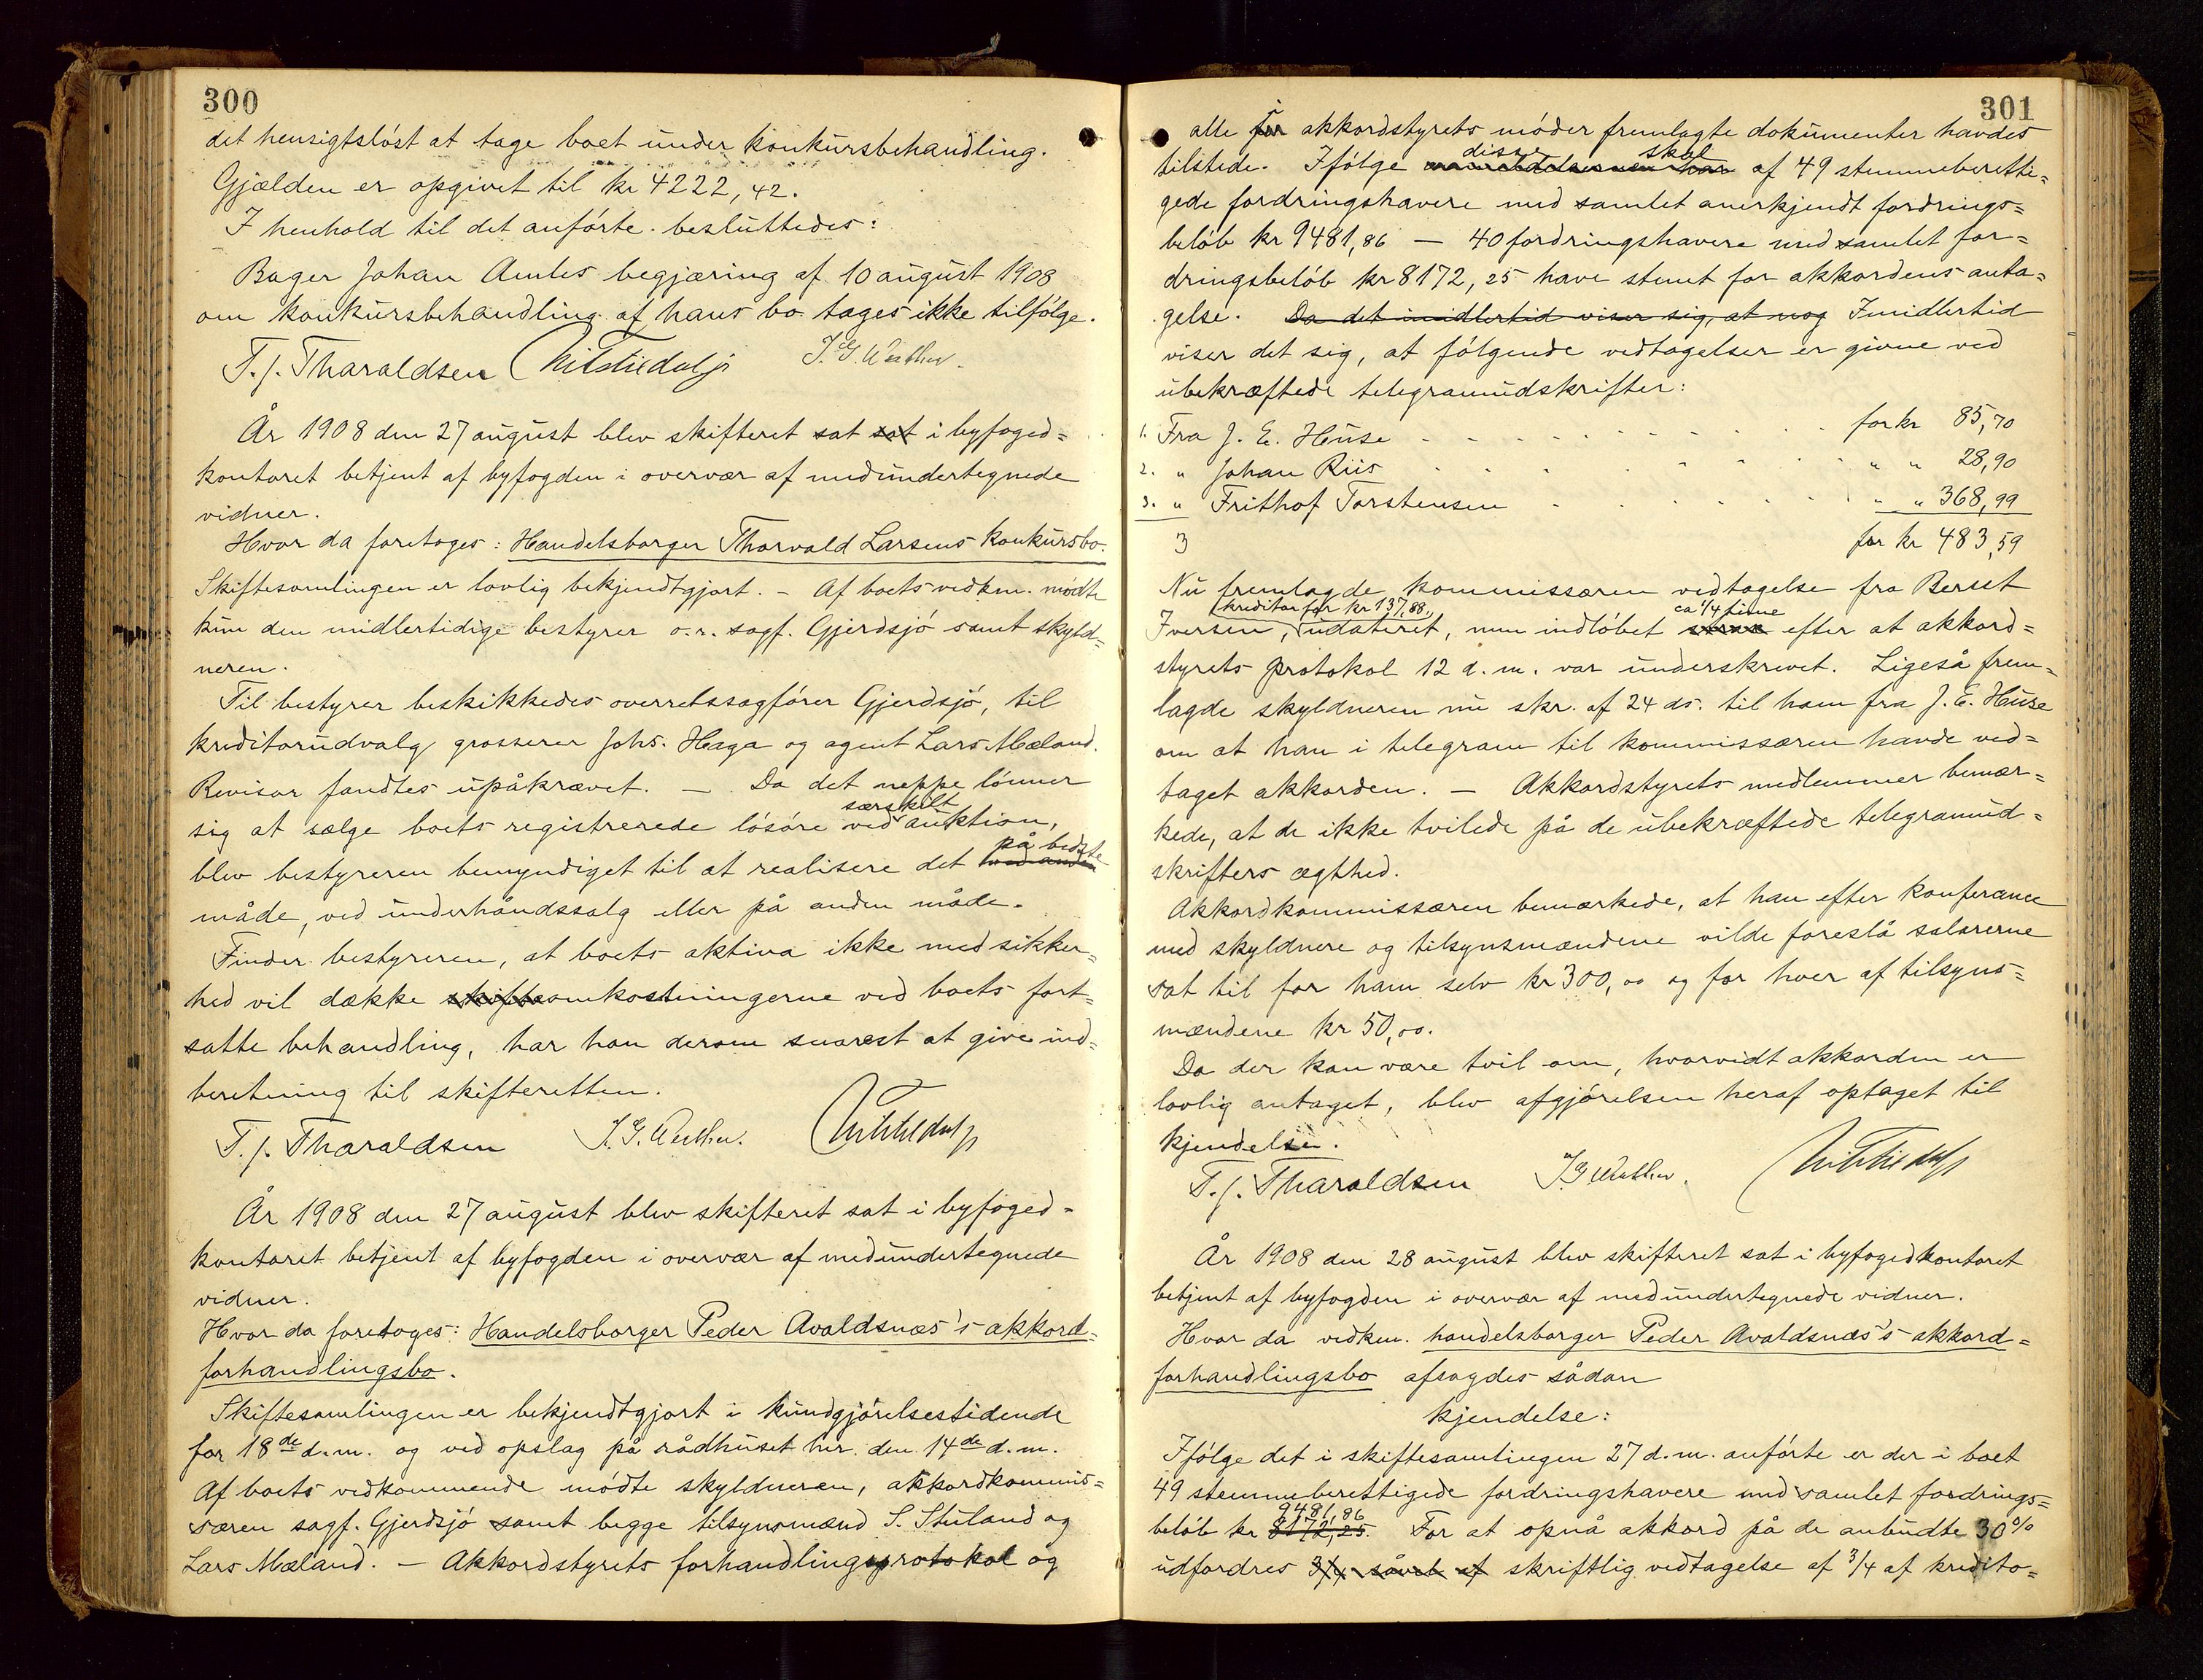 300
det hensigtsløst at tage boet under konkursbehandling.
Gjælden er opgivet til kr 4222,42.
I henhold til det anførte besluttedes:
Bager Johan Amlis begjæring af 10 august 1908
om konkursbehandling af hans bo tages ikke tilfølge.
T. J. Tharaldsen
År 1908 den 27 august blev skifteret sat sat i byfoged=
kontoret betjent af byfogden i overvær af medundertegnede
vidner.
Hvor da foretoges: Handelsborger Thorvald Larsens konkursbo.
Skiftesamlingen er lovlig bekjendtgjort. – Af boets vedkm. mødte
kun den midlertidige bestyrer o.r. sagf. Gjerdsjø samt skyld=
neren.
Til bestyrer beskikkedes overretssagfører Gjerdsjø, til
kreditorudvalg grosserer Johs. Haga og agent Lars Mæland.
Revisor fandtes upåkrævet. – Da det neppe lønner
sig at sælge boets registrerede løsøre ved særskilt auktion,
blev bestyreren bemyndiget til at realisere det ved anden på bedste
måde, ved underhåndssalg eller på anden måde.
Finder bestyreren, at boets aktiva ikke med sikker=
hed vil dække skiftesomkostningerne ved boets fort=
satte behandling, har han derom snarest at give ind=
beretning til skifteretten.
T. J. Tharaldsen
År 1908 den 27 august blev skifteret sat i byfoged=
kontoret betjent af byfogden i overvær af medundertegnede
vidner.
Hvor da foretoges: Handelsborger Peder Avaldsnæs's akkord=
forhandlingsbo.
Skiftesamlingen er bekjendtgjort i kundgjørelsestidende
for 18de d.m. og ved opslag på rådhuset her den 14de d.m.
Af boets vedkommende mødte skyldneren, akkordkommis=
særen sagf. Gjerdsjø samt begge tilsynsmænd S. Stuland og
Lars Mæland. – Akkordstyrets forhandlingsprotokol og
301
alle for i akkordstyrets møder fremlagte dokumenter havdes
tilstede. Ifølge disse skal af 49 stemmeberetti=
gede fordringshavere med samlet anerkjendt fordrings=
beløb kr 9481,86 – 40 fordringshavere med samlet for=
dringsbeløb kr 8172,25 have stemt for akkordens anta=
gelse. Da det imidlertid viser sig, at nog Imidlertid
viser det sig, at følgende vedtagelser er givne ved
ubekræftede telegramudskrifter:
1. Fra J. E. Huse for kr 85,70
2. " Johan Riis " " 28,90
3. " Frithof Torstensen " " 368,99
3 for kr 483,59
Nu fremlagde kommissæren vedtagelse fra Berut
Iversen, kreditor for kr 137,88, udateret, men indløbet ca 1/4 time efter at akkord=
styrets protokol 12 d.m. var underskrevet. Ligeså frem=
lagde skyldneren nu skr. af 24 ds. til ham fra J. E. Huse
om at han i telegram til kommissæren havde ved=
taget akkorden. – Akkordstyrets medlemmer bemær=
kede, at de ikke tvilede på de ubekræftede telegramud=
skrifters ægthed.
Akkordkommissæren bemærkede, at han efter konferance
med skyldnere og tilsynsmændene vilde foreslå salærerne
sat til for ham selv kr 300,00 og for hver af tilsyns=
mændene kr 50,00.
Da der kan være tvil om, hvorvidt akkorden er
lovlig antaget, blev afgjørelsen heraf optaget til
kjendelse.
T. J. Tharaldsen
År 1908 den 28 august blev skifteret sat i byfogedkontoret
betjent af byfogden i overvær af medundertegnede vidner.
Hvor da vedkm. handelsborger Peder Avaldsnæs's akkord=
forhandlingsbo afsagdes sådan
kjendelse:
Ifølge det i skiftesamlingen 27 d.m. anførte er der i boet
49 stemmeberettigede fordringshavere med samlet fordrings=
beløb kr 8172,25. 9481,86 For at opnå akkord på de anbudte 30%
udfordres 3/4 såvel af skriftlig vedtagelse af 3/4 af kredito=